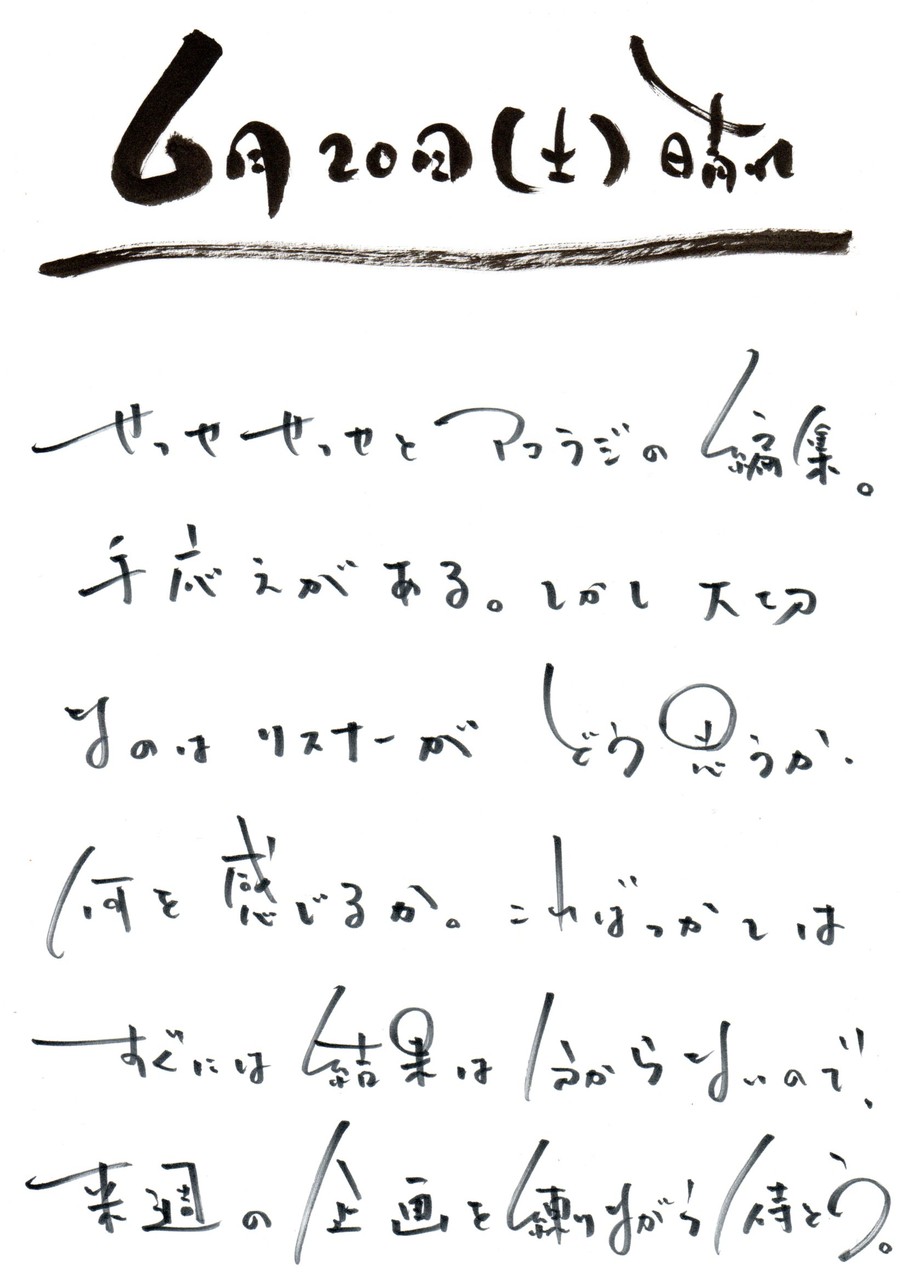 6月20日(土)晴れ
せっせせっせとアコラジの編集。
手応えがある。しかし大切
なのはリスナーがどう思うか.
何を感じるか。こればっかしは
すぐには結果は分からないので、
来週の企画を練りながら待とう。